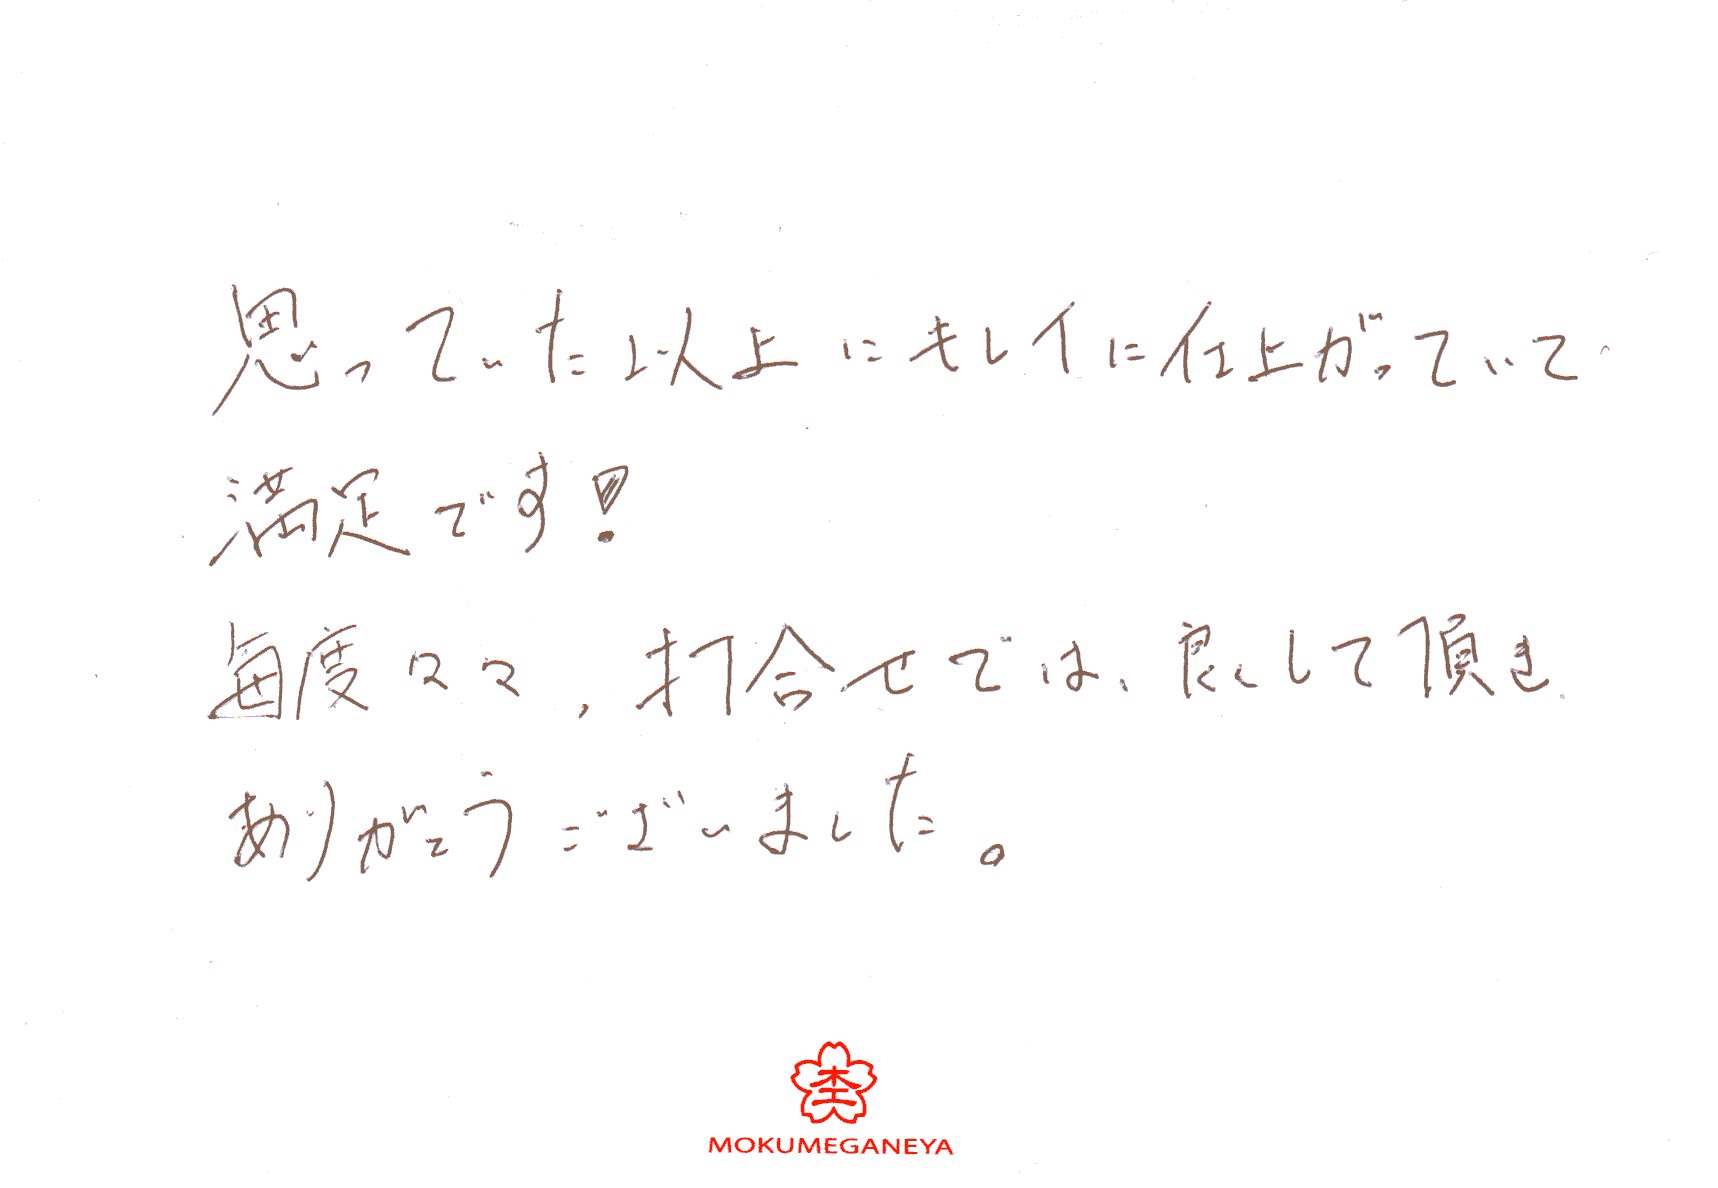 思っていた以上にキレイに仕上がっていて
満足です!
毎度々々、打合せでは、良くして頂き
ありがとうございました。
杢
MOKUMEGANEYA